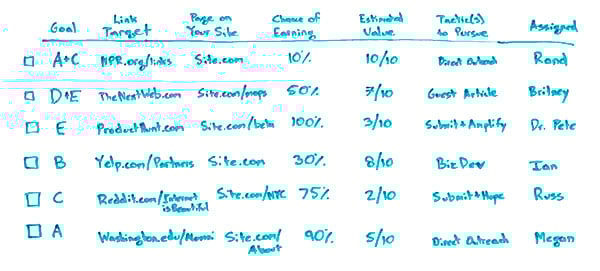 Goal Link Target Page on Your Site Chance of Earning Estimated Value Tactic(s) to Pursue Assigned
A+C NPR.org/links Site.com 10% 10/10 Direct Outreach Rand
D+E TheNextWeb.com Site.com/maps 50% 7/10 Guest Article Britney
E ProductHunt.com Site.com/beta 100% 3/10 Submit+Amplify Dr. Pete
B Yelp.com/Partners Site.com 30% 8/10 Biz Dev Ian
C Reddit.com/Internet is Beautiful Site.com/NYC 75% 2/10 Submit+Hope Russ
A Washington.edu/ Site.com/About 90% 5/10 Direct Outreach Megan